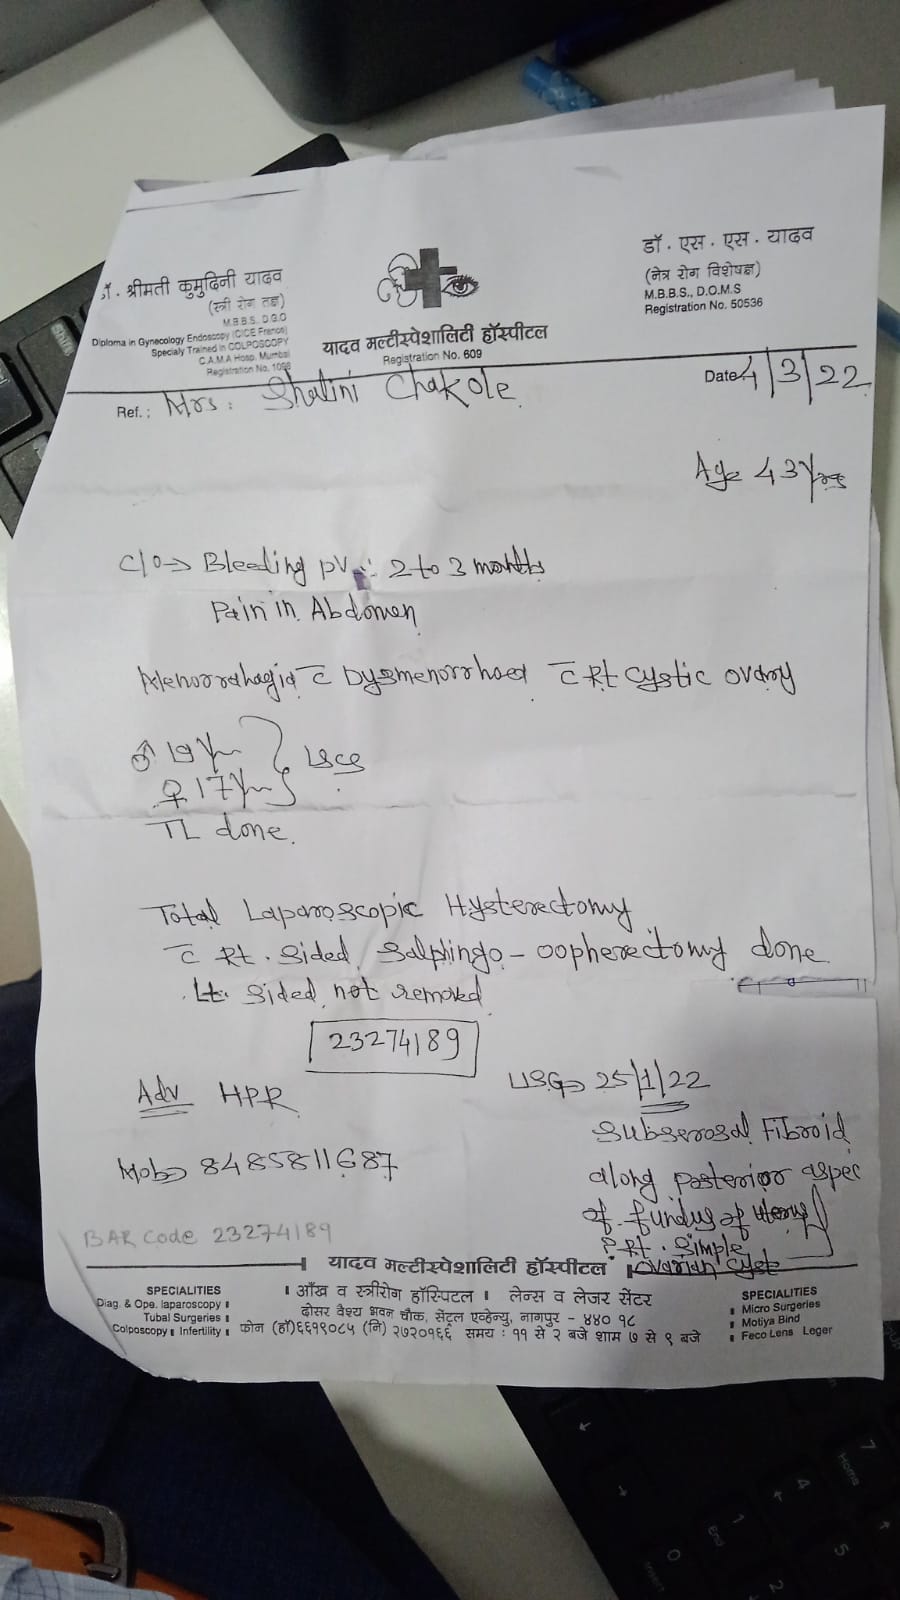 डॉ. श्रीमती कुमुदिनी यादव
(स्त्री रोग तज्ञ)
M.B.B.S. D.G.O
Diploma in Gynecology Endoscopy (CICE France)
Specialy Trained in COLPOSCOPY
C.A.M.A Hosp. Mumbai
Registration No.
यादव मल्टीस्पेशालिटी हॉस्पीटल
Registration No. 609
डॉ. एस. एस. यादव
(नेत्र रोग विशेषज्ञ)
M.B.B.S., D.O.M.S
Registration No. 50536
Ref.: Mrs: Shalini Chakole
Date 4/3/22
Age 43 Yrs
C/O → Bleeding PV 2 to 3 months
Pain in Abdomen
Menorrahagia c̄ Dysmenorrhoea c̄ Rt cystic ovary
♂ 19 Yrs
♀ 17 Yrs } LSCS
TL done.
Total Laparoscopic Hysterectomy
c̄ Rt. sided salphingo-oopherectomy done
Lt. sided not removed
23274189
Adv HPR
Mob → 8485811687
BAR code 23274189
USG → 25/1/22
Subserosal Fibroid
along posterior aspec
of fundus of uterus
Rt. simple
ovarian cyst
यादव मल्टीस्पेशालिटी हॉस्पीटल
। आँख व स्त्रीरोग हॉस्पिटल । लेन्स व लेजर सेंटर
दोसर वैश्य भवन चौक, सेंट्रल एव्हेन्यु, नागपुर - ४४० १८
फोन (हॉ) ६६१९०८५ (नि) २७२०१६६ समय : ११ से २ बजे शाम ७ से ९ बजे
SPECIALITIES
Diag. & Ope. laparoscopy
Tubal Surgeries
Colposcopy Infertility
SPECIALITIES
Micro Surgeries
Motiya Bind
Feco Lens Leger
7
Home
4
1
End
0
Insert
5
2